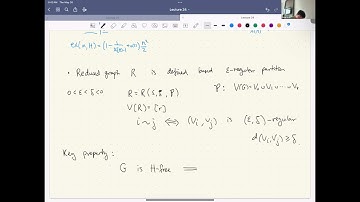 Lecture 26
ex(n, H) = (1 - 1/(χ(H)-1) + o(1)) n²/2
• Reduced graph R is defined based ε-regular partition
0 < ε < δ < 0 R = R(δ, P) P: V(G) = V₀ ∪ V₁ ∪ ... ∪ Vᵣ
V(R) = [r]
i ~ j ⟺ (Vᵢ, Vⱼ) is (ε, δ)-regular
d(Vᵢ, Vⱼ) ≥ δ
Key property:
G is H-free